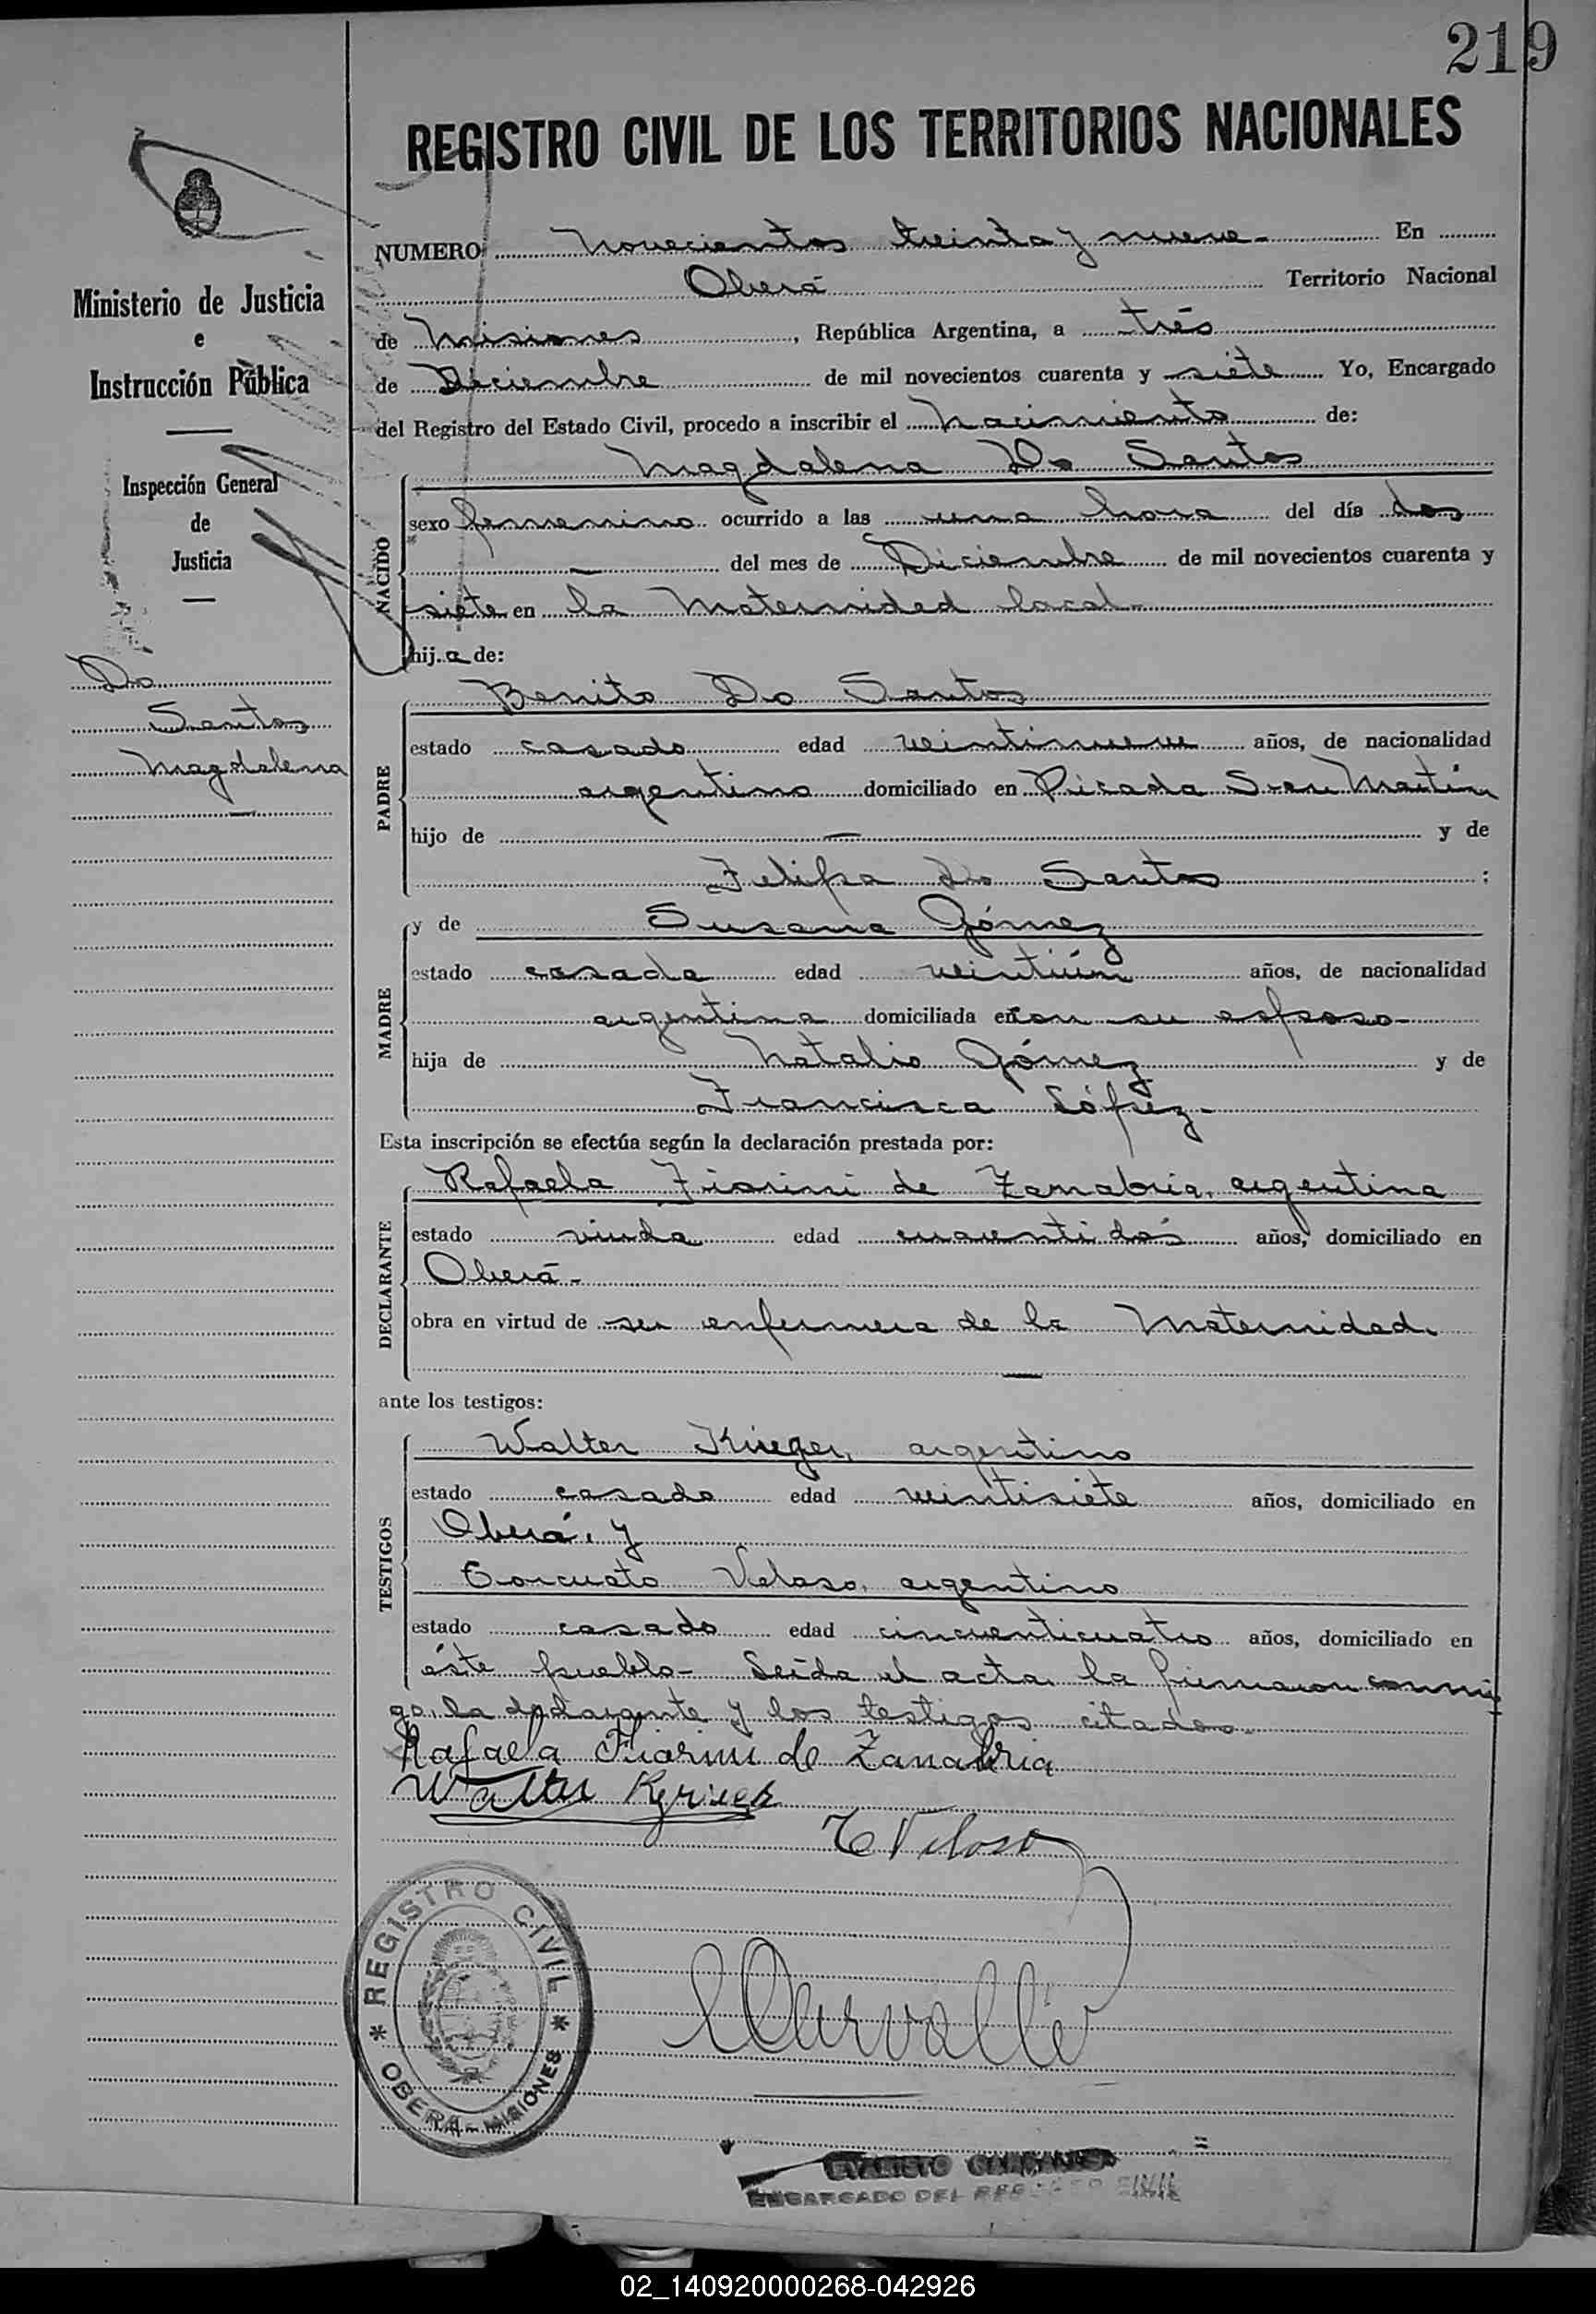 219
REGISTRO CIVIL DE LOS TERRITORIOS NACIONALES
Ministerio de Justicia
e
Instrucción Pública
Inspección General
de
Justicia
Do
Santos
Magdalena
NUMERO Novecientos treinta y nueve - En
Oberá Territorio Nacional
de Misiones, República Argentina, a tres
de Diciembre de mil novecientos cuarenta y siete Yo, Encargado
del Registro del Estado Civil, procedo a inscribir el nacimiento de:
NACIDO
Magdalena Do Santos
sexo femenino ocurrido a las una hora del día dos
— del mes de Diciembre de mil novecientos cuarenta y
siete en la Maternidad local -
hija de:
PADRE
Benito Do Santos
estado casado edad veintinueve años, de nacionalidad
argentino domiciliado en Picada San Martín
hijo de — y de
Felipa Do Santos ;
MADRE
y de Susana Gómez
estado casada edad veintiún años, de nacionalidad
argentina domiciliada con su esposo -
hija de Natalio Gómez y de
Francisca López -
Esta inscripción se efectúa según la declaración prestada por:
DECLARANTE
Rafaela Fiorini de Zanabria, argentina
estado viuda edad cuarentidós años, domiciliado en
Oberá -
obra en virtud de ser enfermera de la Maternidad.
—
ante los testigos:
TESTIGOS
Walter Krieger, argentino
estado casado edad veintisiete años, domiciliado en
Oberá, y
Torcuato Veloso, argentino
estado casado edad cincuenticuatro años, domiciliado en
éste pueblo - Leída el acta, la firmaron conmi-
go, la declarante y los testigos citados.
Rafaela Fiorini de Zanabria
Walter
T Veloso
REGISTRO CIVIL
* OBERA - MISIONES *
EVARISTO
ENCARGADO DEL REGISTRO CIVIL
02_140920000268-042926